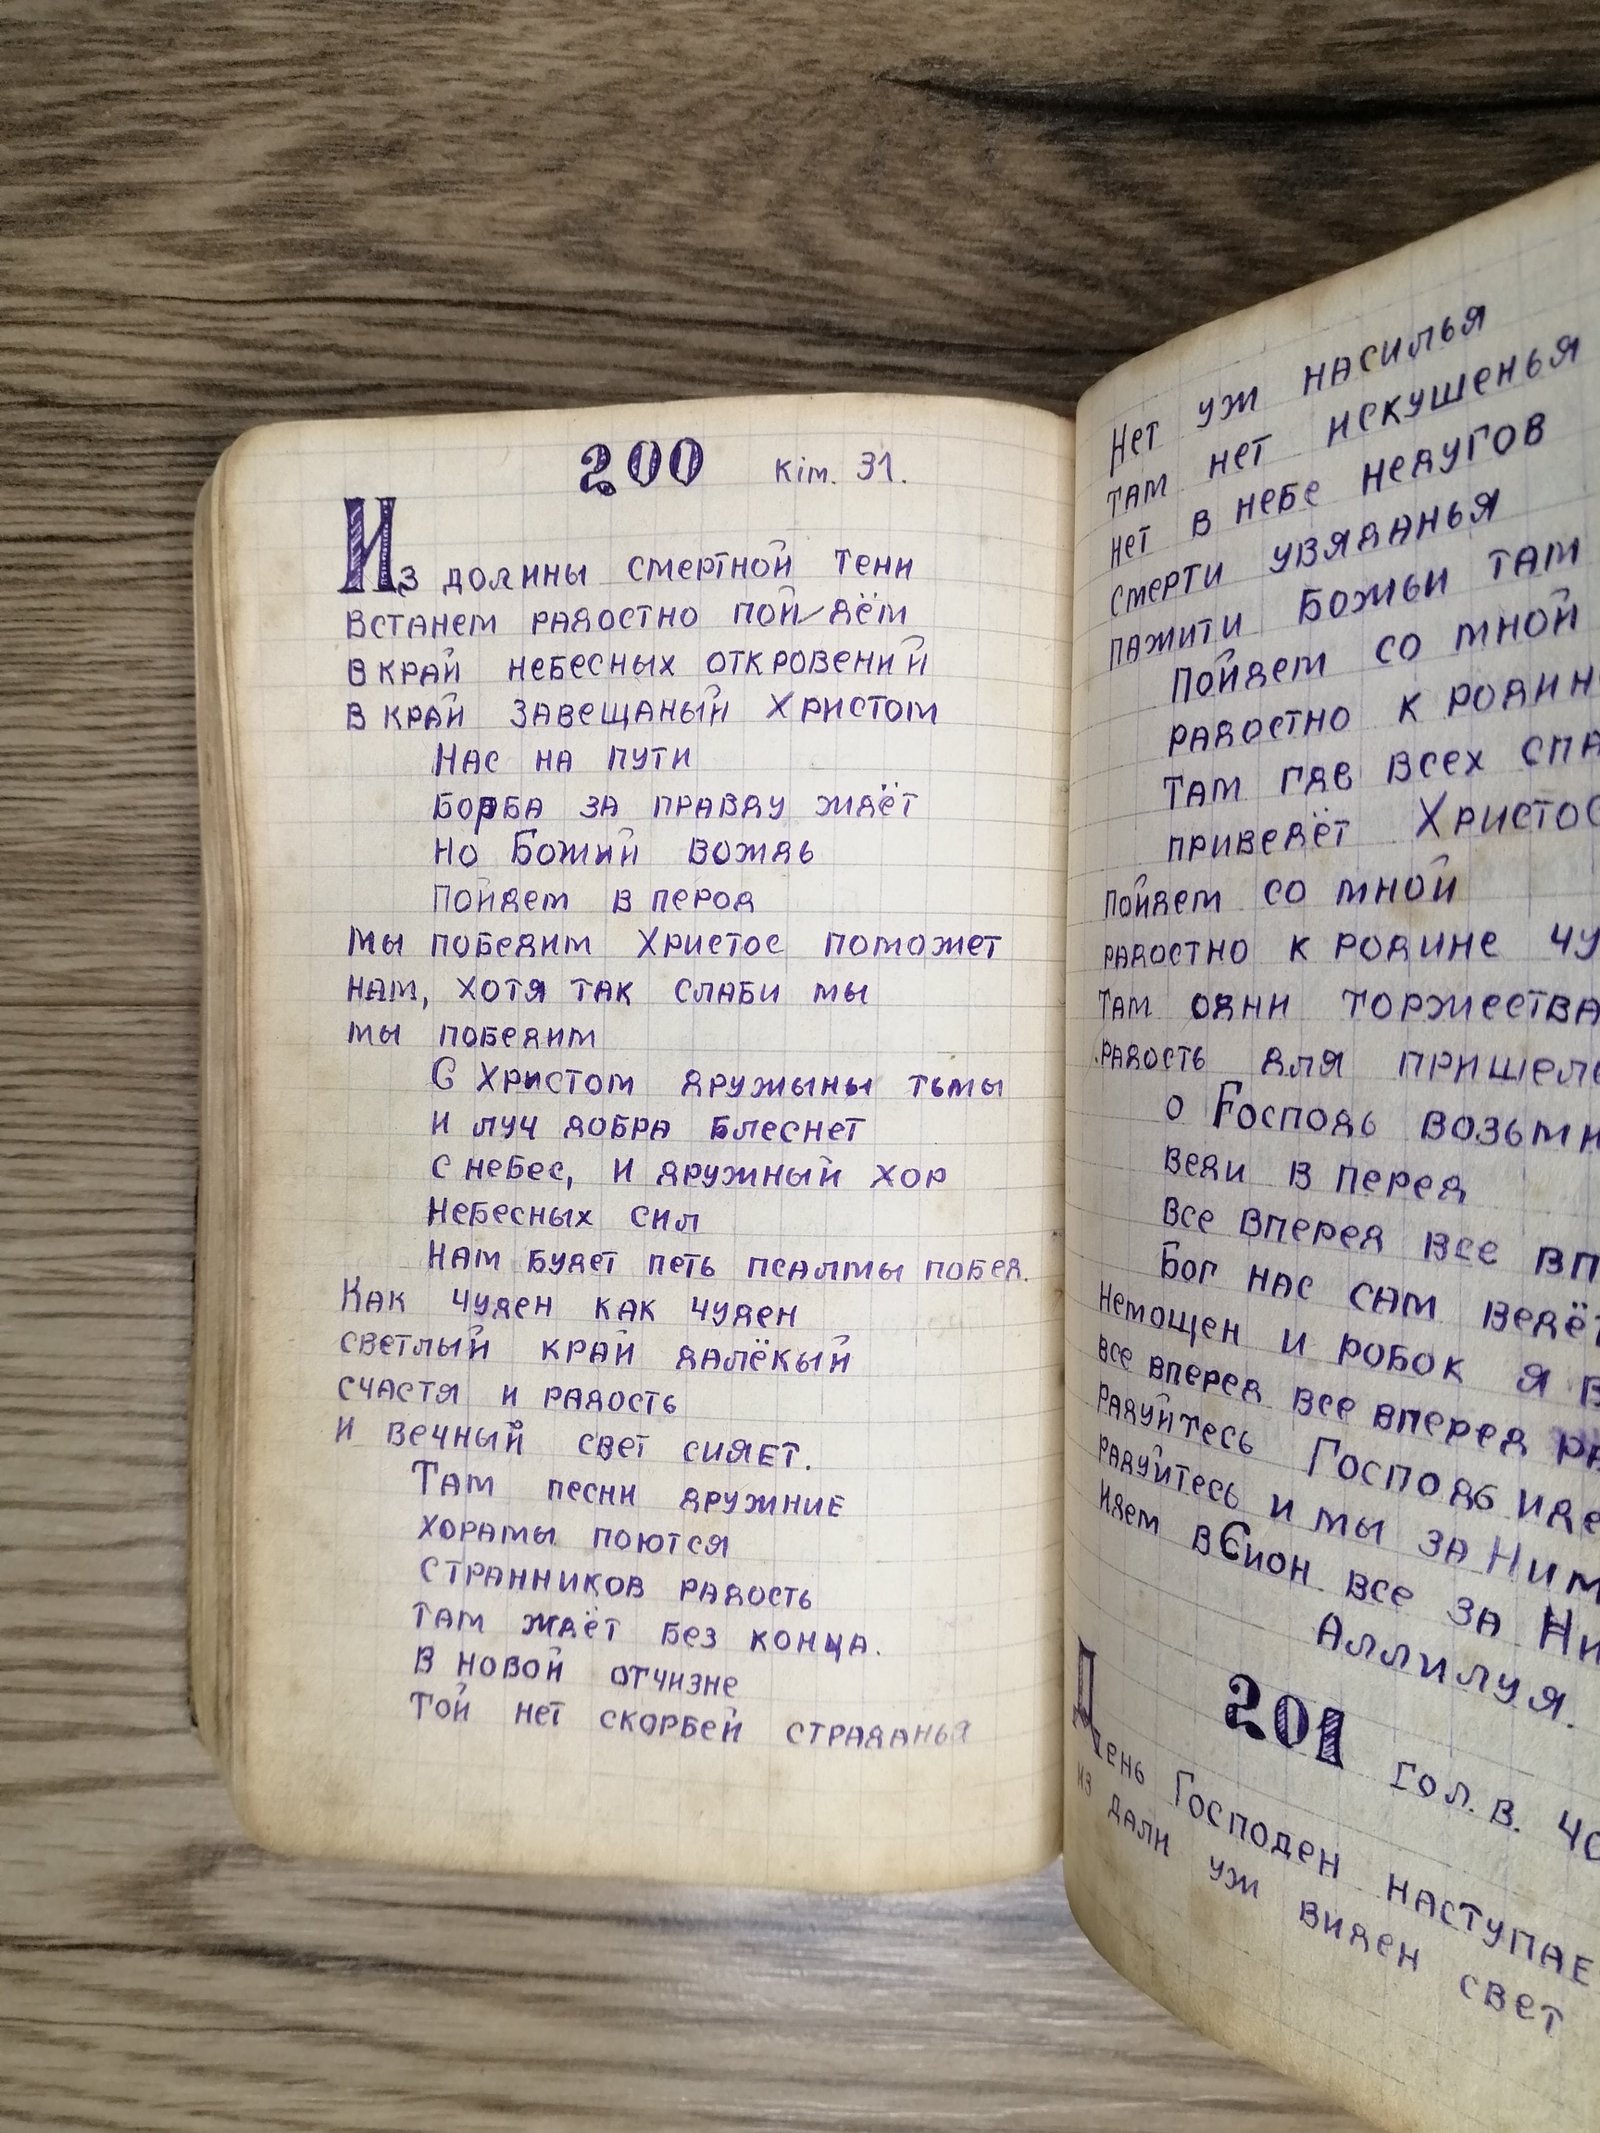 200 Кіт. 31.
Из долины смертной тени
встанем радостно пойдём
в край небесных откровений
в край завещаный Христом
Нас на пути
борба за правду ждёт
но Божий вождь
пойдем в перод
мы победим Христос поможет
нам, хотя так слаби мы
мы победим
С Христом дружыны тьмы
и луч добра блеснет
с небес, и дружный хор
небесных сил
нам будет петь псалмы побед.
Как чуден как чуден
светлый край далёкый
счастя и радость
и вечный свет сияет.
Там песни дружние
хорамы поются
странников радость
там ждёт без конца.
в новой отчизне
той нет скорбей страданья
Нет уж насилья
там нет искушенья
нет в небе недугов
смерти увяданья
пажити Божьи там
Пойдем со мной
радостно к родин
там где всех спа
приведёт Христос
пойдем со мной
радостно к родине чу
там одни торжества
радость для пришель
о Господь возьми
веди в перед
все вперед все вп
Бог нас сам ведёт
Немощен и робок я в
все вперед все вперед ра
радуйтесь Господь иде
радуйтесь и мы за Ним
идем в Сион все за Ни
Аллилуя.
201 гол. в. 40
День Господен наступае
из дали уж виден свет